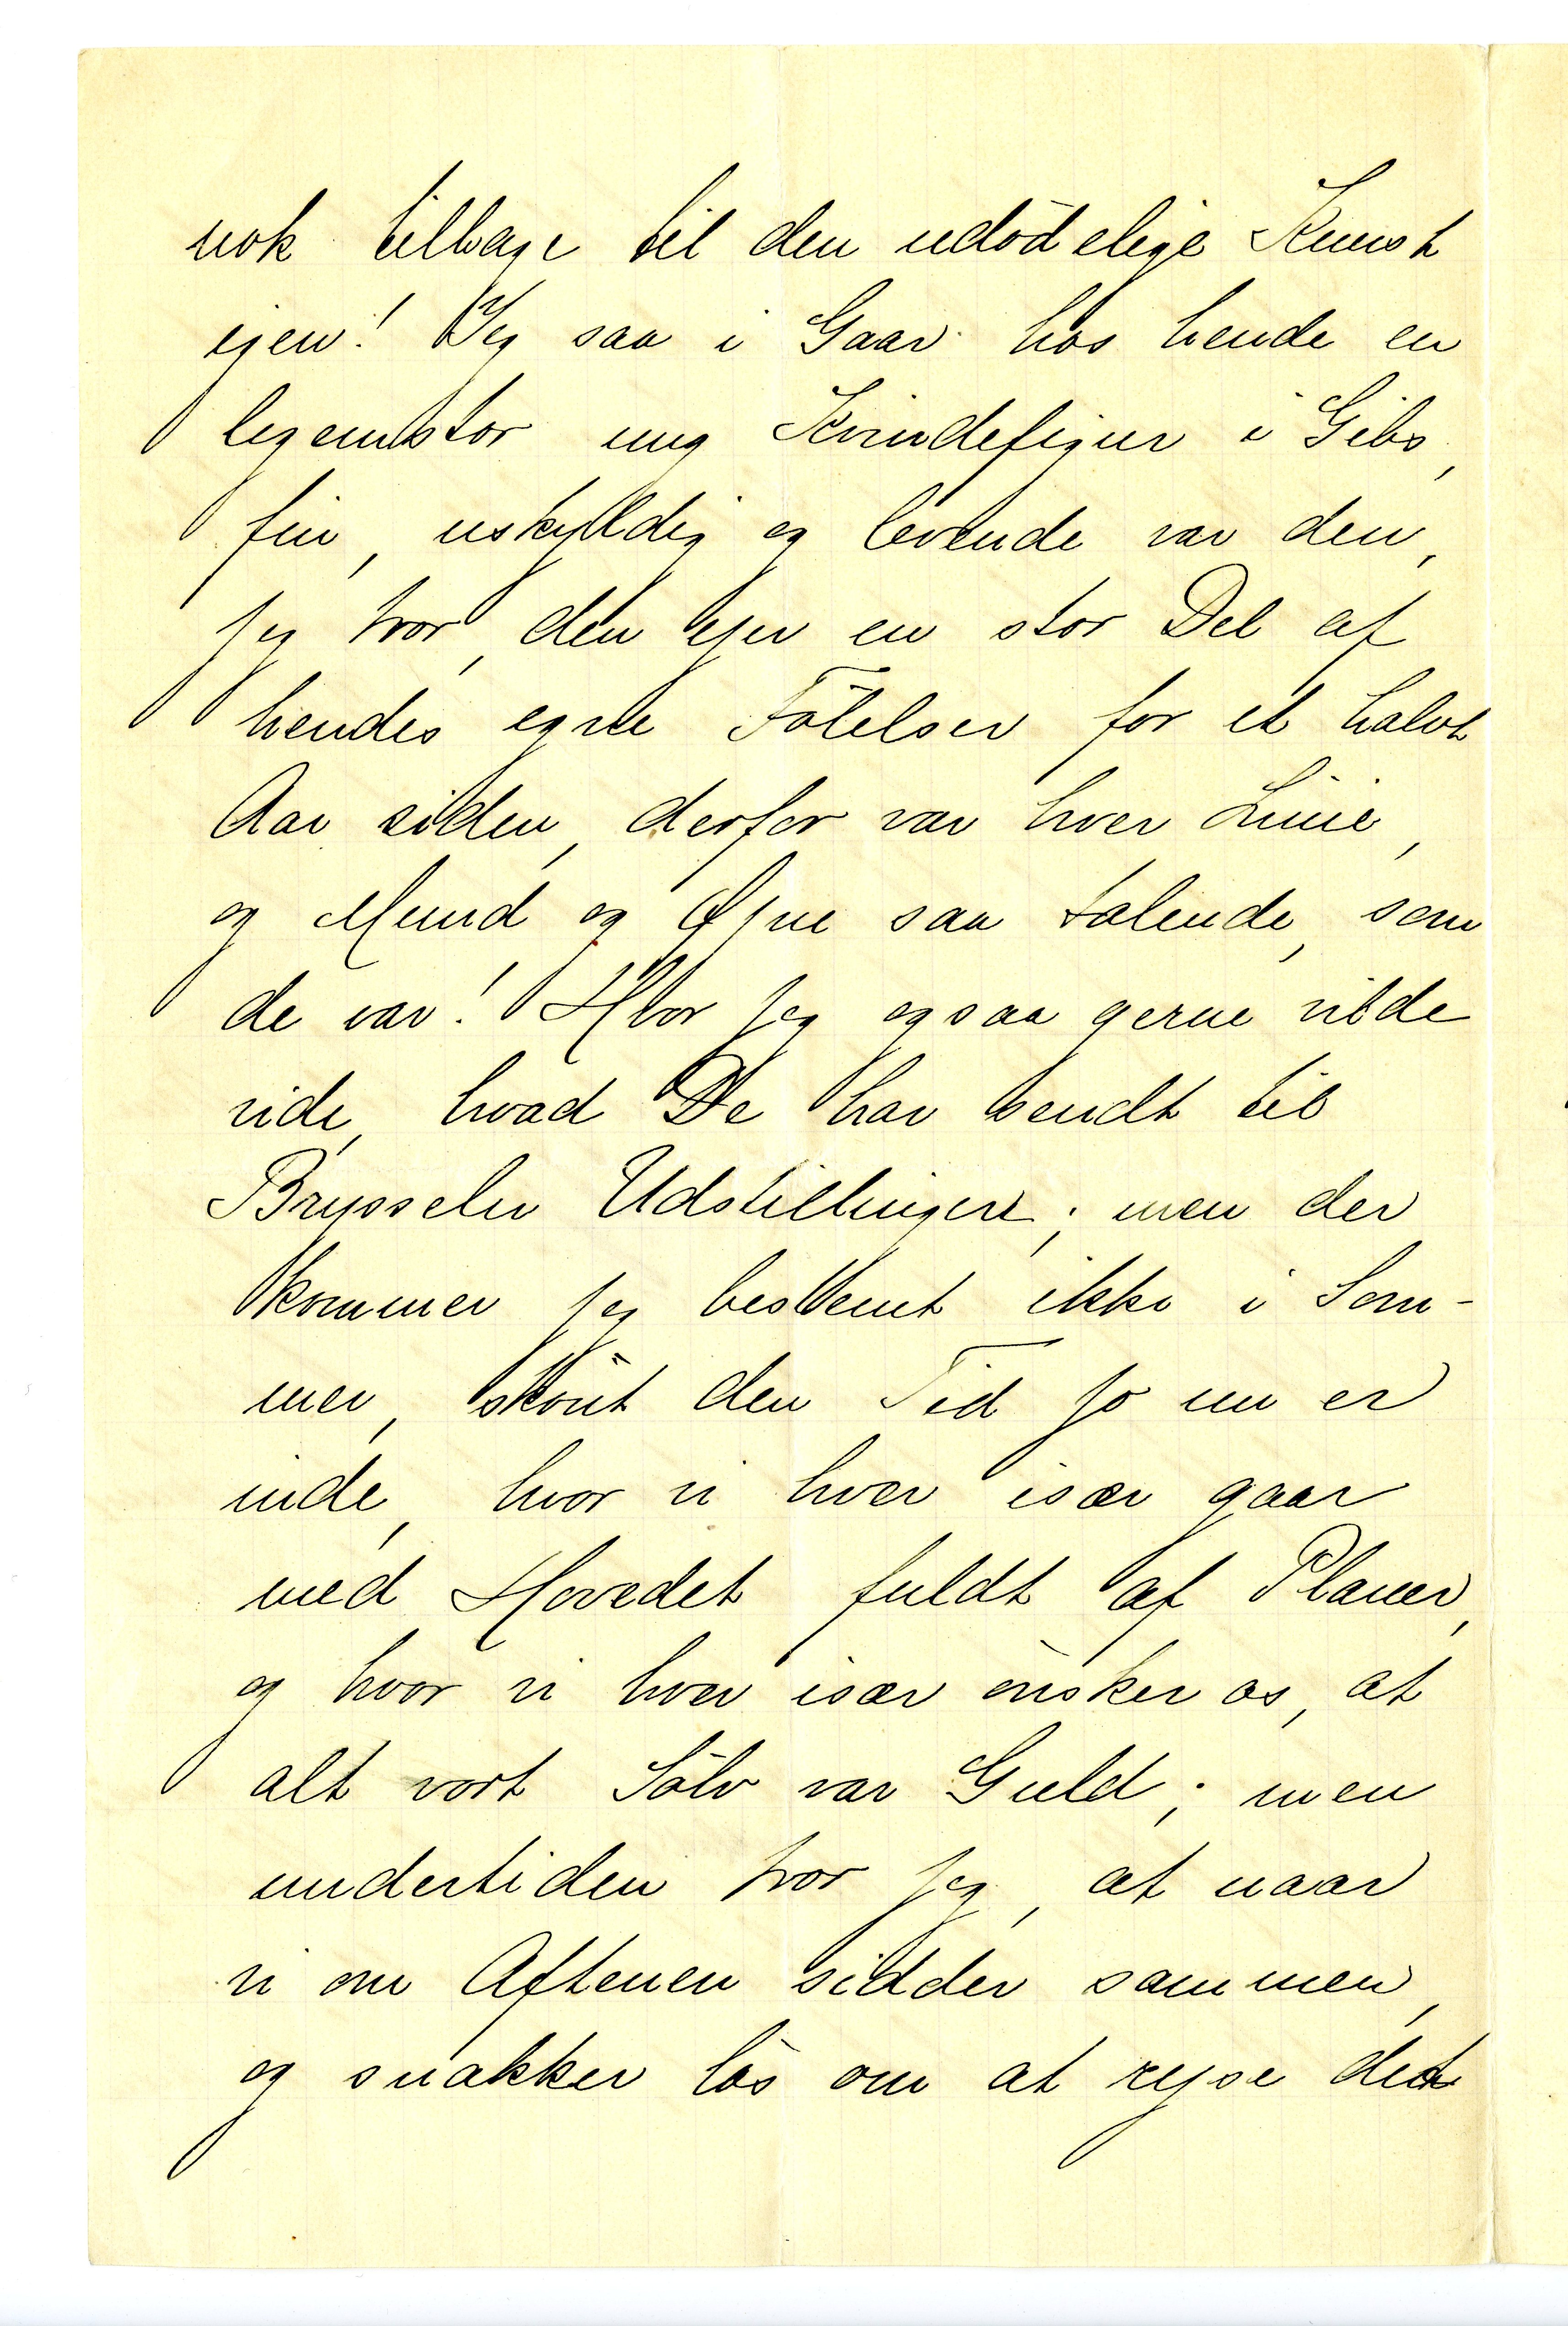 nok tilbage til den udödelige Kunst
igen! Jeg saa i Gaar hos hende en
legemstor ung Kvindefigur i Gibs,
fin, uskyldig og levende var den,
jeg tror, den ejer en stor Del af
hendes egne Fölelser for et halvt
Aar siden, derfor var hver Linie,
og Mund og Øjne saa talende, som
de var! Hvor jeg ogsaa gerne vilde
vide, hvad De har sendt til
Brysseler Udstillingen; men der
kommer jeg bestemt ikke i Som-
mer, skönt den Tid jo nu er
inde, hvor vi hver især gaar
med Hovedet fuldt af Planer,
og hvor vi hver især önsker os, at
alt vort Sölv var Guld; men
undertiden tror jeg, at naar
vi om Aftenen sidder sammen,
og snakker lös om at rejse det